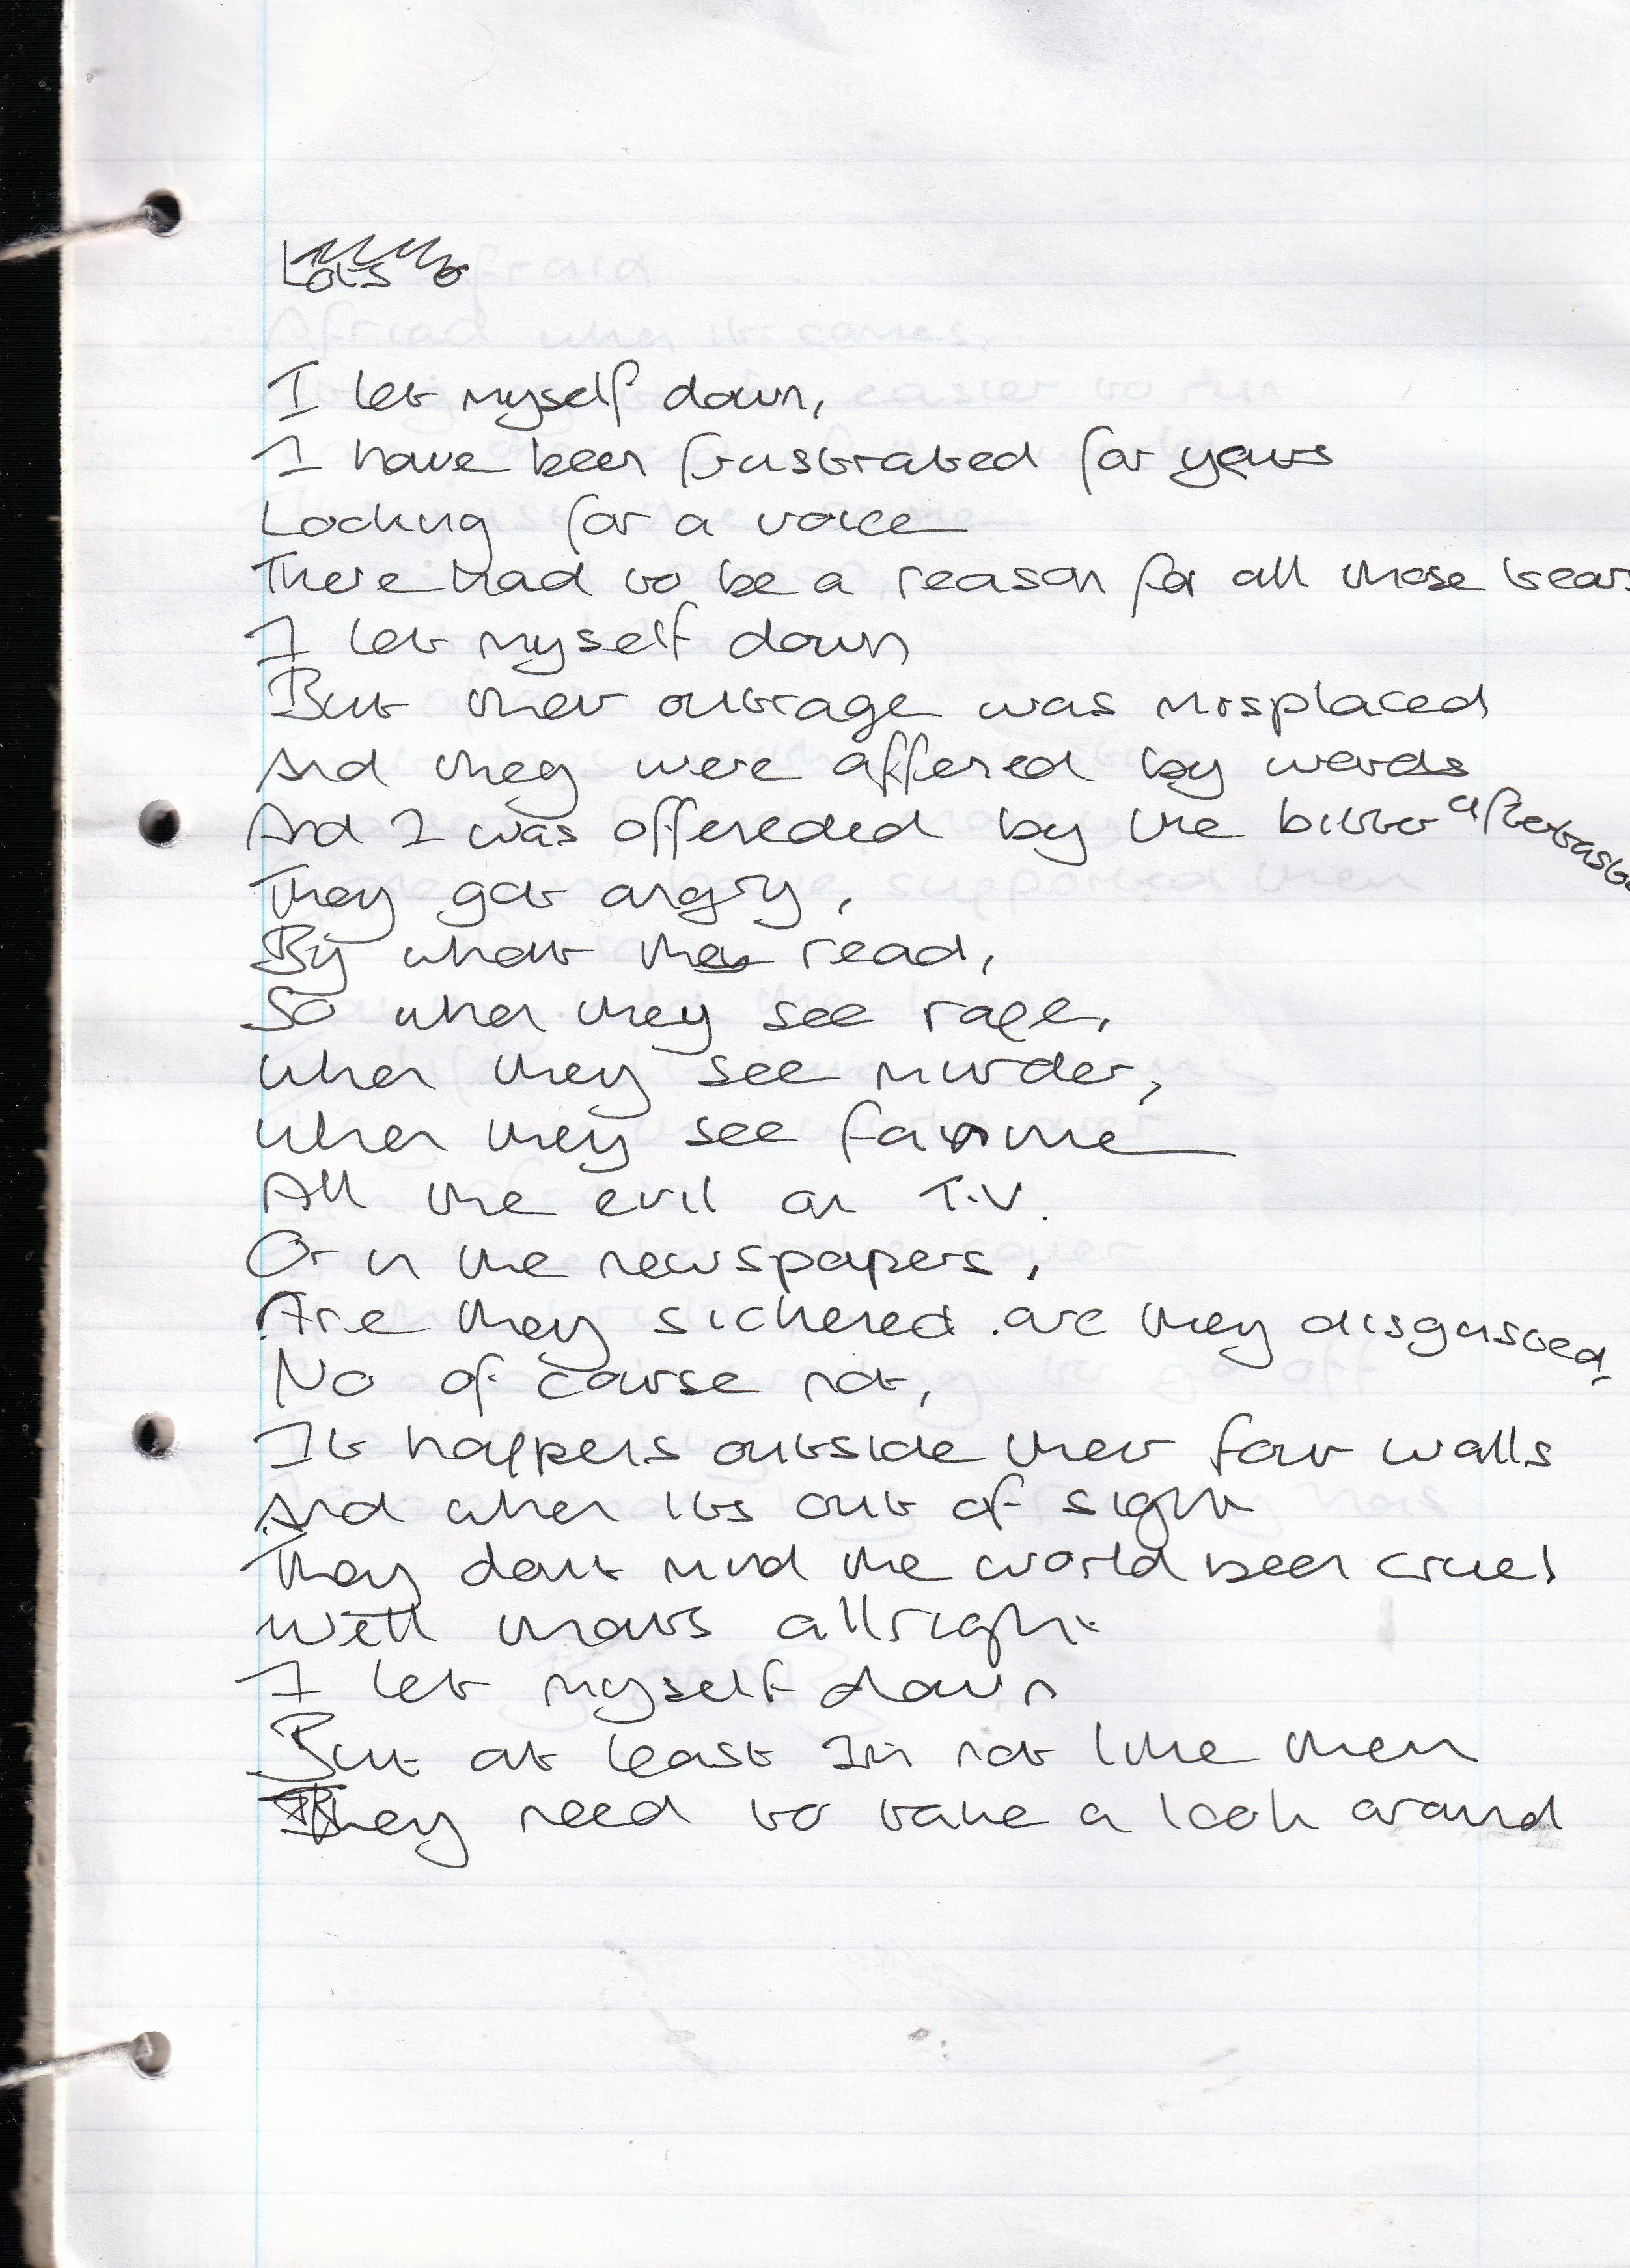 Lots o
I let myself down,
I have been frustrated for years
Looking for a voice
There had to be a reason for all those tears
I let myself down
But their outrage was misplaced
And they were affened by words
And I was offeneded by the bitter aftertaste
They got angry,
By what they read,
So when they see rape,
when they see murder,
when they see famine
All the evil on T.V.
Or in the newspapers,
Are they sickened. are they disgusted,
No of course not,
It happens outside their four walls
And when its out of sight
They dont mind the world been cruel
Well thats allright
I let myself down
But at least Im not like them
They need to take a look around